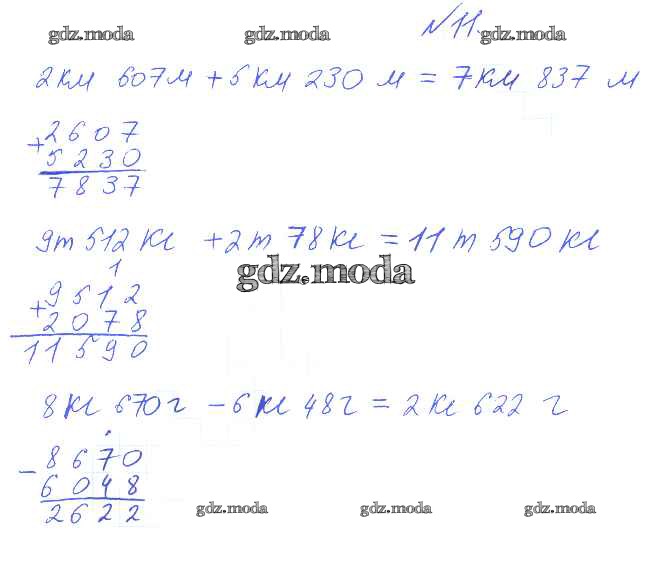 gdz.moda gdz.moda №11. gdz.moda
2 км 607 м + 5 км 230 м = 7 км 837 м
+2607
5230
7837
9т 512 кг + 2т 78 кг = 11 т 590 кг
gdz.moda
1
+9512
2078
11590
8 кг 670 г - 6 кг 48 г = 2 кг 622 г
-8670
6048
2622
gdz.moda gdz.moda gdz.moda